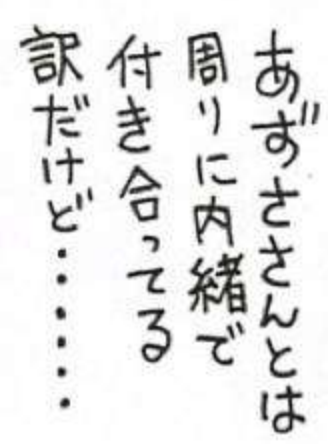 あずささんとは
周りに内緒で
付き合ってる
訳だけど・・・・・・